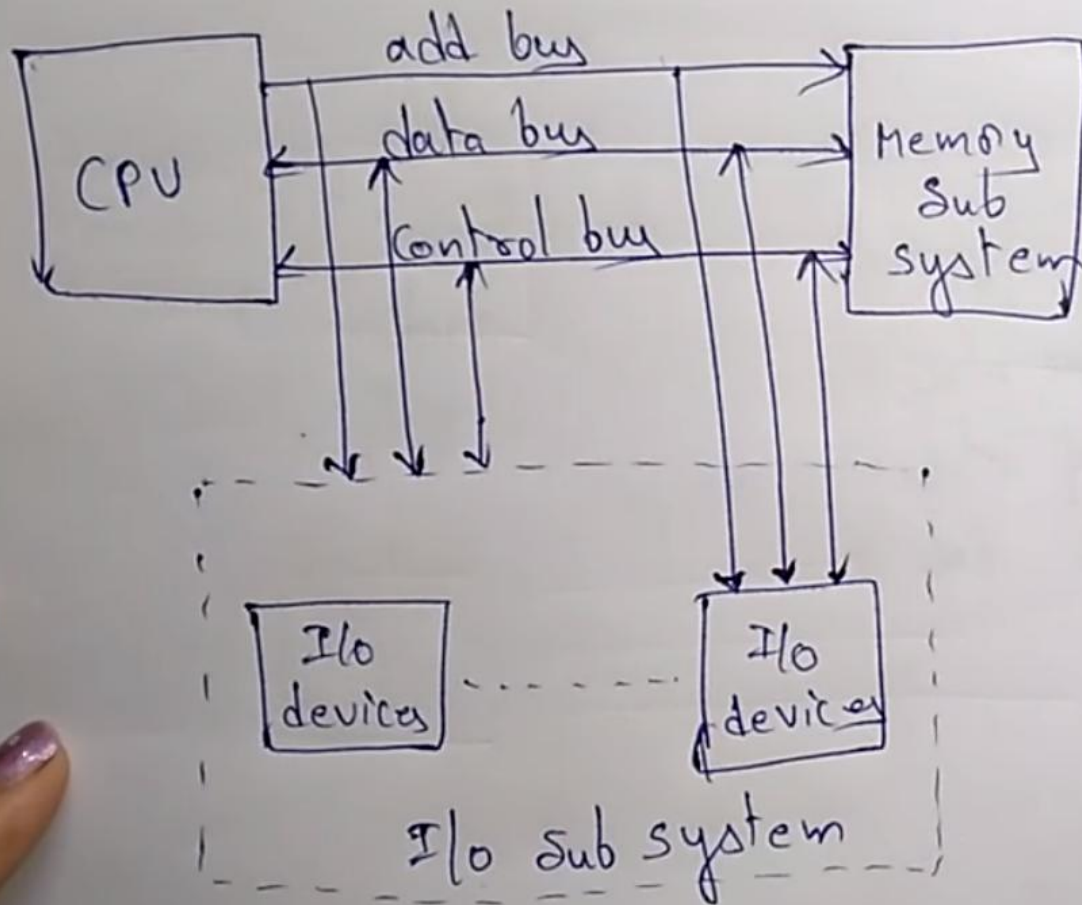 add bus
CPU
data bus
Control bus
Memory
Sub
system
I/o
devices
I/o
devices
I/o Sub system